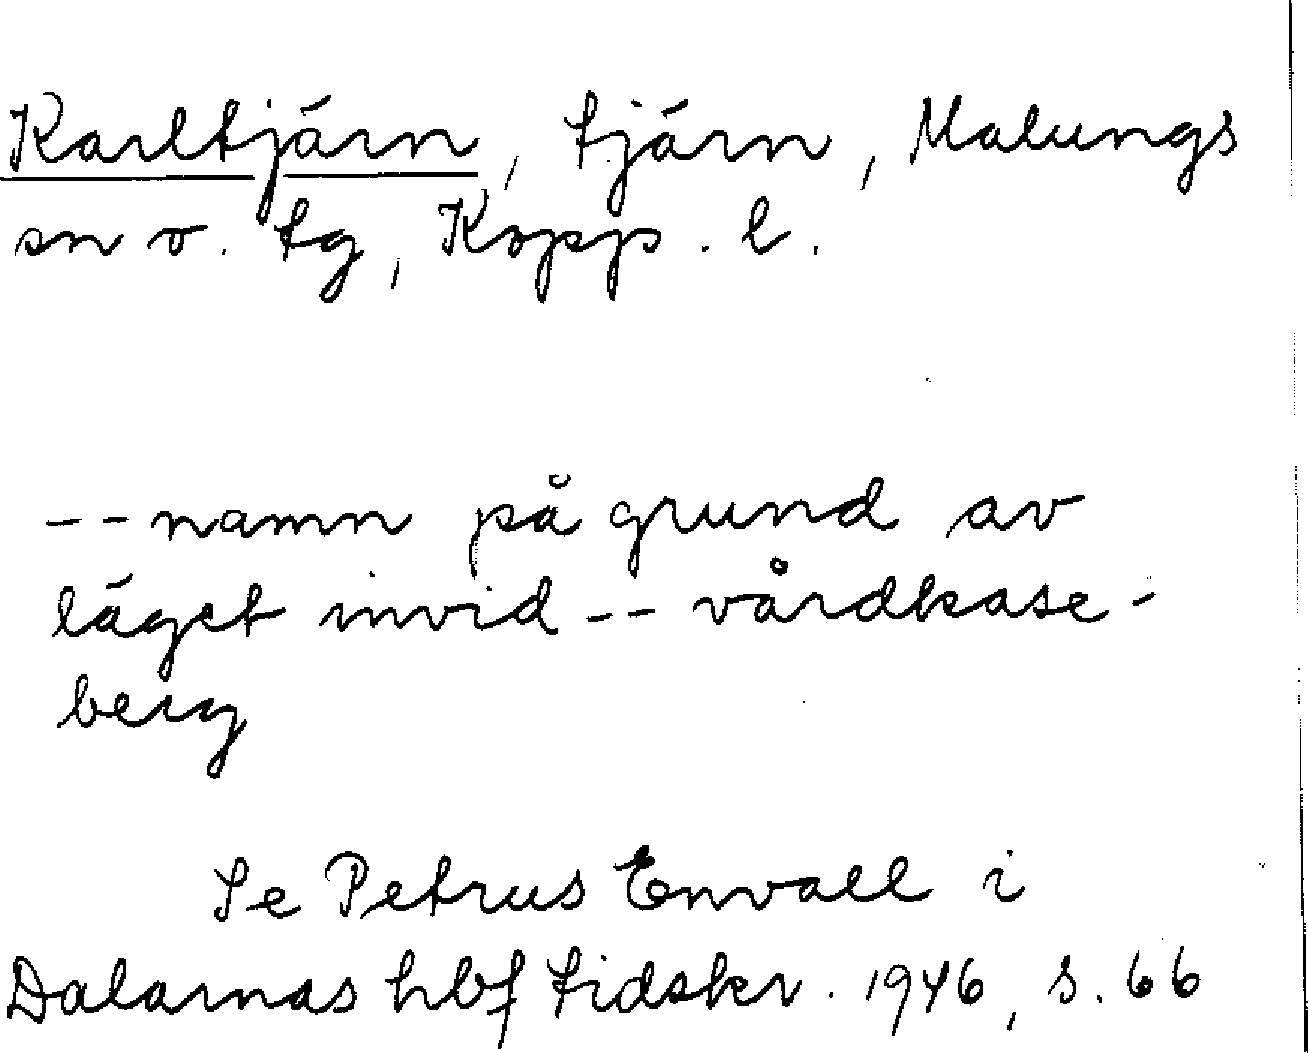 Karltjärn, tjärn, Malungs
sn o. tg, Kopp. l.
-- namn på grund av
läget invid -- vårdkase-
berg
Se Petrus Envall i
Dalarnas hbf tidskr. 1946, s. 66